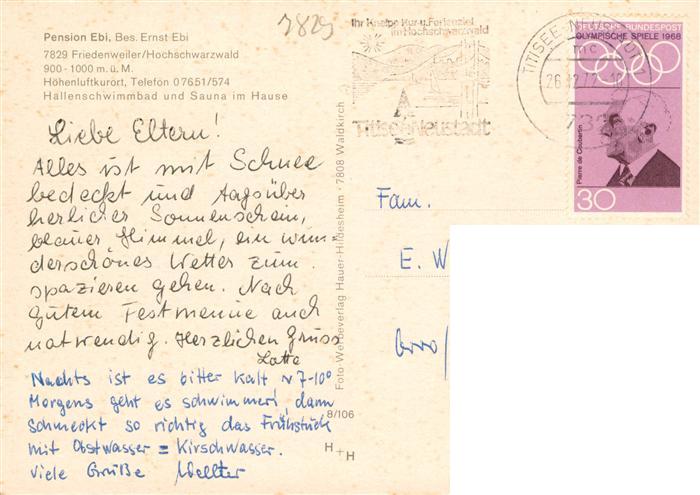 Pension Ebi, Bes. Ernst Ebi
7829 Friedenweiler/Hochschwarzwald
900 - 1000 m. ü. M.
Höhenluftkurort, Telefon 07651/574
Hallenschwimmbad und Sauna im Hause
7829
Ihr Kneipp Kur-u. Ferienziel
im Hochschwarzwald
Titisee-Neustadt
TITISEE-NEUSTADT
mc
26.12.72
DEUTSCHE BUNDESPOST
OLYMPISCHE SPIELE 1968
Pierre de Coubertin
30
Liebe Eltern!
Alles ist mit Schnee
bedeckt und tagsüber
herlicher Sonnenschein,
blauer Himmel, ein wun=
derschönes Wetter zum
spazieren gehen. Nach
gutem Festmenue auch
notwendig. Herzlichen Gruss
Lotte
Nachts ist es bitter kalt ~ 7-10°
Morgens geht es schwimmen, dann
schmeckt so richtig das Frühstück
mit Obstwasser = Kirschwasser.
Viele Grüße Walter
Foto-Werbeverlag Hauer-Hildesheim · 7808 Waldkirch
8/106
H+H
Fam.
E. W